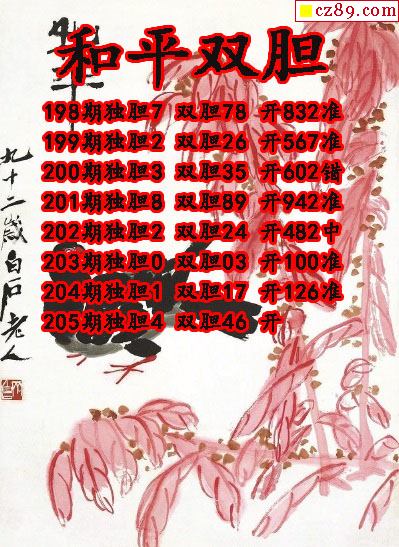 cz89.com
和平双胆
198期独胆7 双胆78 开832准
199期独胆2 双胆26 开567准
200期独胆3 双胆35 开602错
201期独胆8 双胆89 开942准
202期独胆2 双胆24 开482中
203期独胆0 双胆03 开100准
204期独胆1 双胆17 开126准
205期独胆4 双胆46 开
九十二岁白石老人